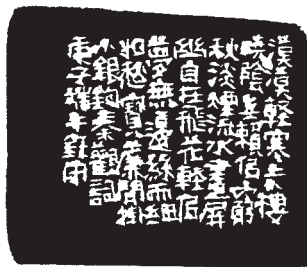 漠漠輕寒上小樓
曉陰無賴佀窮
秋淡煙流水畫屏
幽自在飛花輕佀
夢無邊絲雨細
如愁寶簾閒掛
小銀鉤秦觀詞
庚子